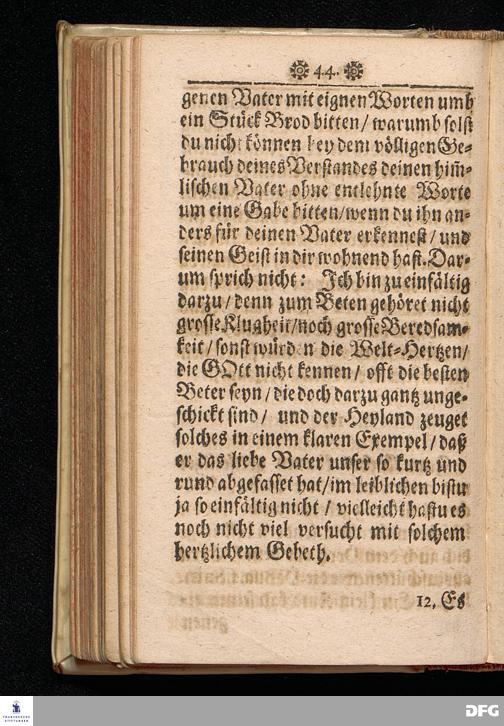 44.
genen Vater mit eignen Worten umb
ein Stück Brod bitten / warumb solst
du nicht können bey dem völligen Ge-
brauch deines Verstandes deinen him̃-
lischen Vater ohne entlehnte Worte
um eine Gabe bitten / wenn du ihn an-
ders für deinen Vater erkennest / und
seinen Geist in dir wohnend hast. Dar-
um sprich nicht: Ich bin zu einfältig
darzu / denn zum Beten gehöret nicht
grosse Klugheit / noch grosse Beredsam-
keit / sonst würden die Welt-Hertzen /
die GOtt nicht kennen / offt die besten
Beter seyn / die doch darzu gantz unge-
schickt sind / und der Heyland zeuget
solches in einem klaren Exempel / daß
er das liebe Vater unser so kurtz und
rund abgefasset hat / im leiblichen bistu
ja so einfältig nicht / vielleicht hastu es
noch nicht viel versucht mit solchem
hertzlichem Gebeth.
12, Es
FRANCKESCHE
STIFTUNGEN
DFG